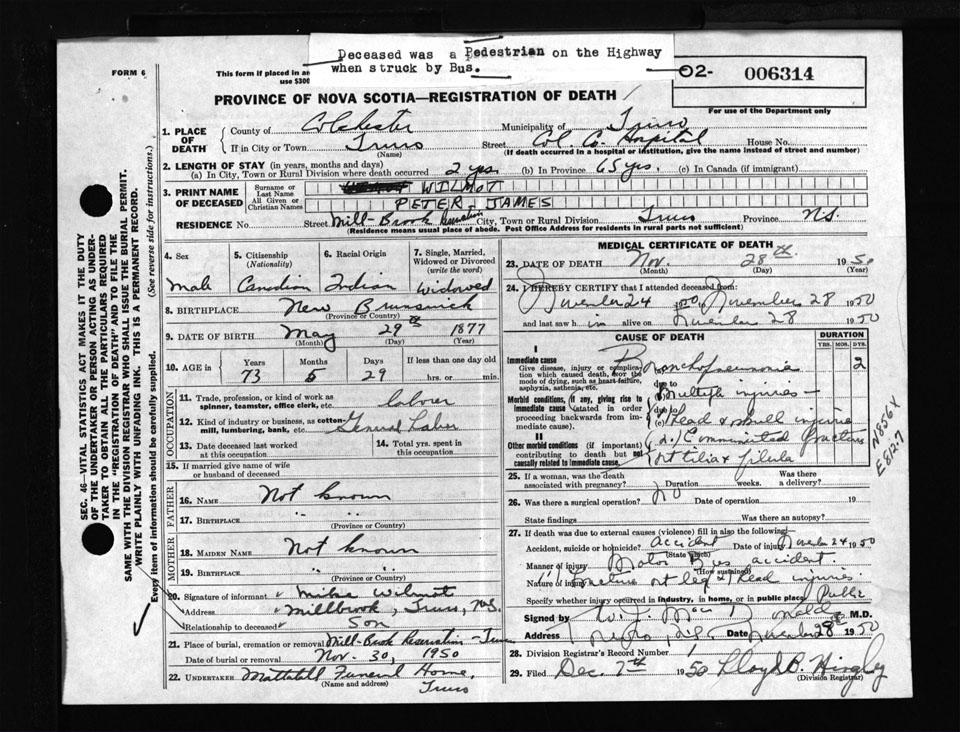 Deceased was a Pedestrian on the Highway
when struck by Bus.
FORM 6
This form if placed in an
use $300
02- 006314
PROVINCE OF NOVA SCOTIA—REGISTRATION OF DEATH
For use of the Department only
1. PLACE OF DEATH
County of Colchester Municipality of Truro
If in City or Town Truro Street Col. Co. Hospital House No.
(Name) (If death occurred in a hospital or institution, give the name instead of street and number)
2. LENGTH OF STAY (in years, months and days)
(a) In City, Town or Rural Division where death occurred 2 yrs (b) In Province 65 yrs. (c) In Canada (if immigrant)
3. PRINT NAME OF DECEASED
Surname or Last Name WILMOT
All Given or Christian Names PETER-JAMES
RESIDENCE No. Street Mill-Brook Reservation City, Town or Rural Division Truro Province N.S.
(Residence means usual place of abode. Post Office Address for residents in rural parts not sufficient)
4. Sex 5. Citizenship (Nationality) 6. Racial Origin 7. Single, Married, Widowed or Divorced (write the word)
Male Canadian Indian Widowed
8. BIRTHPLACE New Brunswick
(Province or Country)
9. DATE OF BIRTH May 29th 1877
(Month) (Day) (Year)
10. AGE in Years Months Days If less than one day old
73 5 29 hrs. or min.
OCCUPATION
11. Trade, profession, or kind of work as spinner, teamster, office clerk, etc. laborer
12. Kind of industry or business, as cotton-mill, lumbering, bank, etc. General Labor
13. Date deceased last worked at this occupation 14. Total yrs. spent in this occupation
15. If married give name of wife or husband of deceased
FATHER
16. Name Not known
17. Birthplace " "
(Province or Country)
MOTHER
18. Maiden Name Not known
19. Birthplace " "
(Province or Country)
20. Signature of informant Mike Wilmot
Address Millbrook, Truro, N.S.
Relationship to deceased Son
21. Place of burial, cremation or removal Mill-Brook Reservation - Truro
Date of burial or removal Nov. 30, 1950
22. UNDERTAKER Mattatall Funeral Home,
(Name and address) Truro
MEDICAL CERTIFICATE OF DEATH
23. DATE OF DEATH Nov. 28th. 1950
(Month) (Day) (Year)
24. I HEREBY CERTIFY that I attended deceased from
November 24 1950 November 28 1950
and last saw him alive on November 28 1950
CAUSE OF DEATH DURATION
YRS. MOS. DYS.
I
Immediate cause
Give disease, injury or complication which caused death, not the mode of dying, such as heart failure, asphyxia, asthenia, etc.
Bronchopneumonia 2
due to
Multiple injuries -
Morbid conditions, if any, giving rise to immediate cause (stated in order proceeding backwards from immediate cause).
due to
Head & skull injuries
II
Other morbid conditions (if important) contributing to death but not causally related to immediate cause.
Comminuted fractures
rt tibia & fibula
N856X
E8127
25. If a woman, was the death associated with pregnancy? Duration weeks. Was there a delivery?
26. Was there a surgical operation? No Date of operation 19
State findings Was there an autopsy?
27. If death was due to external causes (violence) fill in also the following:
Accident, suicide or homicide? accident Date of injury November 24 1950
(State which)
Manner of injury Motor Bus accident.
(How sustained)
Nature of injury Fracture rt leg & Head injuries.
Specify whether injury occurred in industry, in home, or in public place Public
Signed by M.D.
Address Truro, N.S. Date November 28 1950
28. Division Registrar's Record Number
29. Filed Dec. 7th 1950 Lloyd B. Hingley
(Division Registrar)
SEC. 46—VITAL STATISTICS ACT MAKES IT THE DUTY
OF THE UNDERTAKER OR PERSON ACTING AS UNDER-
TAKER TO OBTAIN ALL THE PARTICULARS REQUIRED
IN THE "REGISTRATION OF DEATH" AND TO FILE THE
SAME WITH THE DIVISION REGISTRAR WHO SHALL ISSUE THE BURIAL PERMIT.
WRITE PLAINLY WITH UNFADING INK. THIS IS A PERMANENT RECORD.
Every item of information should be carefully supplied. (See reverse side for instructions.)